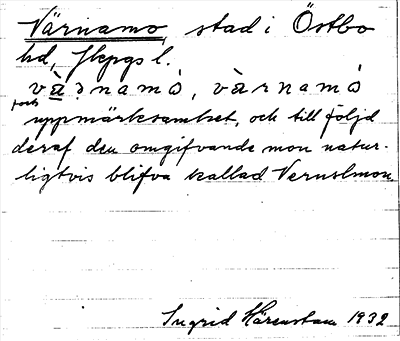 Värnamo, stad i Östbo
hd, Jkpgs l.
uppmärksamhet, och till följd
deraf den omgifvande mon natur-
ligtvis blifva kallad Vernolmon.
Ingrid Härenstam 1932